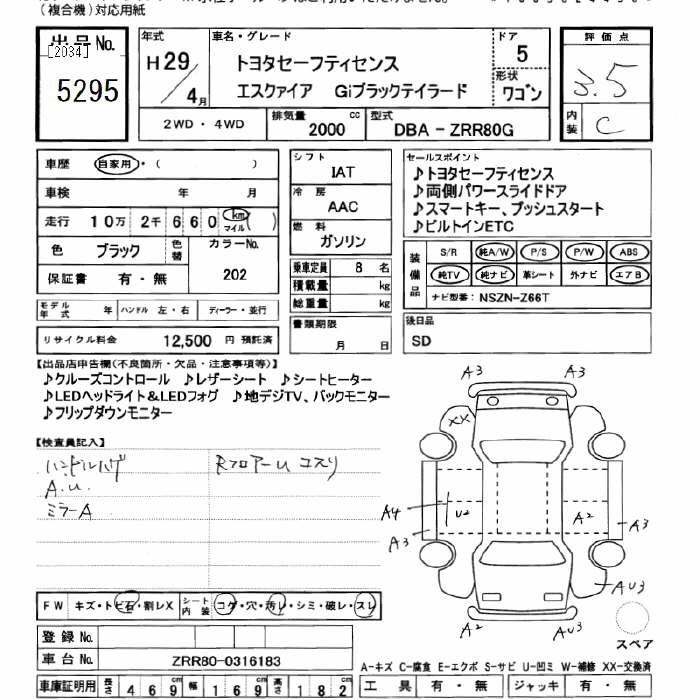 (複合機)対応用紙
出品No.
[2034]
5295
年式
H29/4月
車名・グレード
トヨタセーフティセンス
エスクァイア Giブラックテイラード
ドア
5
形状
ワゴン
評価点
3.5
内装
C
2WD・4WD
排気量
2000 cc
型式
DBA-ZRR80G
車歴 自家用・( )
車検 年 月
走行 10万 2千 660 km マイル ( )
色 ブラック
色替
カラーNo.
202
保証書 有・無
モデル年式 年
ハンドル 左・右
ディーラー・並行
リサイクル料金 12,500 円 預託済
シフト
IAT
冷房
AAC
燃料
ガソリン
乗車定員 8 名
積載量 kg
総重量 kg
書類期限
月 日
セールスポイント
♪トヨタセーフティセンス
♪両側パワースライドドア
♪スマートキー、プッシュスタート
♪ビルトインETC
装備品
S/R 純A/W P/S P/W ABS
純TV 純ナビ 革シート 外ナビ エアB
ナビ型番: NSZN-Z66T
後日品
SD
【出品店申告欄(不良箇所・欠品・注意事項等)】
♪クルーズコントロール ♪レザーシート ♪シートヒーター
♪LEDヘッドライト&LEDフォグ ♪地デジTV、バックモニター
♪フリップダウンモニター
【検査員記入】
ハンドルハゲ
RフロアーU コスリ
A.U.
ミラーA
A3 A3
XX
A4 U2 A2
A3 A3
AU3
A2 AU3
スペア
FW キズ・トビ石・割レX
シート内装 コゲ・穴・汚レ・シミ・破レ・スレ
登録No.
車台No. ZRR80-0316183
車庫証明用 長さ 469cm 幅 169cm 高さ 182cm
A-キズ C-腐食 E-エクボ S-サビ U-凹ミ W-補修 XX-交換済
工具 有・無 ジャッキ 有・無